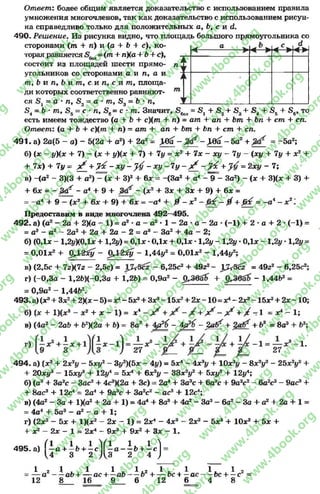 Ответ: более общим является доказательство с использованием правила
умножения многочленов, так как доказательство с использованием рисун-
ка справедливо только для положительных a, b, c и d.
490. Решение. Из рисунка видно, что площадь большого прямоугольника со
сторонами (m + n) и (a + b + c), ко-
торая равняется Sбол = (m + n)(a + b + c),
состоит из площадей шести прямо-
угольников со сторонами a и n, a и
m, b и n, b и m, c и n, c и m, площа-
ди которых соответственно равняют-
a b c d
n
m
ся S₁ = a · n, S₂ = a · m, S₃ = b · n,
S₄ = b · m, S₅ = c · n, S₆ = c · m. Значит, Sбол = S₁ + S₂ + S₃ + S₄ + S₅ + S₆, то
есть имеем тождество (a + b + c)(m + n) = am + an + bm + bn + cm + cn.
Ответ: (a + b + c)(m + n) = am + an + bm + bn + cm + cn.
491. а) 2a(5 – a) – 5(2a + a²) + 4a² = 10a – 2a² – 10a – 5a² + 2a² = –5a²;
б) (x – y)(x + 7) – (x + y)(x + 7) + 7y = x² + 7x – xy – 7y – (xy + 7y + x² +
+ 7x) + 7y = x² + 7x – xy – 7y – xy – 7y – x² – 7x + 7y = 2xy – 7;
в) –(a² – 3)(3 + a²) – (x + 3)² + 6x = –(3a² + a⁴ – 9 – 3a²) – (x + 3)(x + 3) +
+ 6x = – 3a² – a⁴ + 9 + 3a² – (x² + 3x + 3x + 9) + 6x =
= –a⁴ + 9 – (x² + 6x + 9) + 6x = –a⁴ + 9 – x² – 6x – 9 + 6x = –a⁴ – x².
Предоставим в виде многочлена 492–495.
492. а) (a² – 2a + 2)(a – 1) = a² · a – a² · 1 – 2a · a – 2a · (–1) + 2 · a + 2 · (–1) =
= a³ – a² – 2a² + 2a + 2a – 2 = a³ – 3a² + 4a – 2;
б) (0,1x – 1,2y)(0,1x + 1,2y) = 0,1x · 0,1x + 0,1x · 1,2y – 1,2y · 0,1x – 1,2y · 1,2y =
= 0,01x² + 0,12xy – 0,12xy – 1,44y² = 0,01x² – 1,44y²;
в) (2,5c + 7z)(7z – 2,5c) = 17,5cz – 6,25c² + 49z² – 17,5cz = 49z² – 6,25c²;
г) (–0,3a – 1,2b)(–0,3a + 1,2b) = 0,9a² – 0,36ab + 0,36ab – 1,44b² =
= 0,9a² – 1,44b².
493. а) (x³ + 3x² + 2)(x – 5) = x⁴ – 5x³ + 3x³ – 15x² + 2x – 10 = x⁴ – 2x³ – 15x² + 2x – 10;
б) (x + 1)(x³ – x² + x – 1) = x⁴ – x³ + x² – x + x³ – x² + x – 1 = x⁴ – 1;
в) (4a² – 2ab + b²)(2a + b) = 8a³ + 4a²b – 4a²b – 2ab² + 2ab² + b³ = 8a³ + b³;
г) (1/9 x² + 1/3 x + 1)(1/3 x – 1) = 1/27 x³ – 1/9 x² + 1/9 x² – 1/3 x + 1/3 x – 1 = 1/27 x³ – 1.
494. а) (x³ + 2x²y – 5xy² – 3y³)(5x – 4y) = 5x⁴ – 4x³y + 10x³y – 8x²y² – 25x²y² +
+ 20xy³ – 15xy³ + 12y⁴ = 5x⁴ + 6x³y – 33x²y² + 5xy³ + 12y⁴;
б) (a³ + 3a²c – 3ac² + 4c³)(2a + 3c) = 2a⁴ + 3a³c + 6a³c + 9a²c² – 6a²c² – 9ac³ +
+ 8ac³ + 12c⁴ = 2a⁴ + 9a³c + 3a²c² – ac³ + 12c⁴;
в) (4a² – 3a + 1)(a² + 2a + 1) = 4a⁴ + 8a³ + 4a² – 3a³ – 6a² – 3a + a² + 2a + 1 =
= 4a⁴ + 5a³ – a² – a + 1;
г) (2x² – 5x + 1)(x² – 2x – 1) = 2x⁴ – 4x³ – 2x² – 5x³ + 10x² + 5x +
+ x² – 2x – 1 = 2x⁴ – 9x³ + 9x² + 3x – 1.